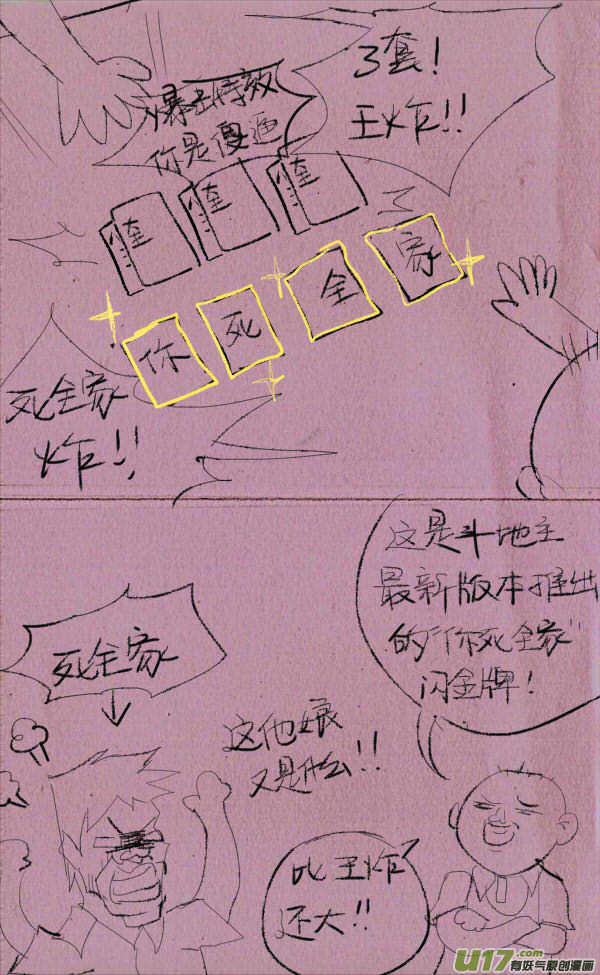 3套!
王炸!!
爆击特效
你是傻逼
你
死
全
家
死全家
炸!!
这是斗地主
最新版本推出
的“你死全家”
闪金牌!
死全家
这他娘
又是什么!!
比王炸
还大!!
U17.com
有妖气原创漫画